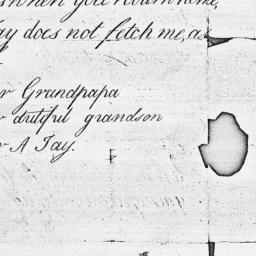 when you return home,
ay does not fetch me, as
r Grandpapa
r dutiful grandson
r A Jay.